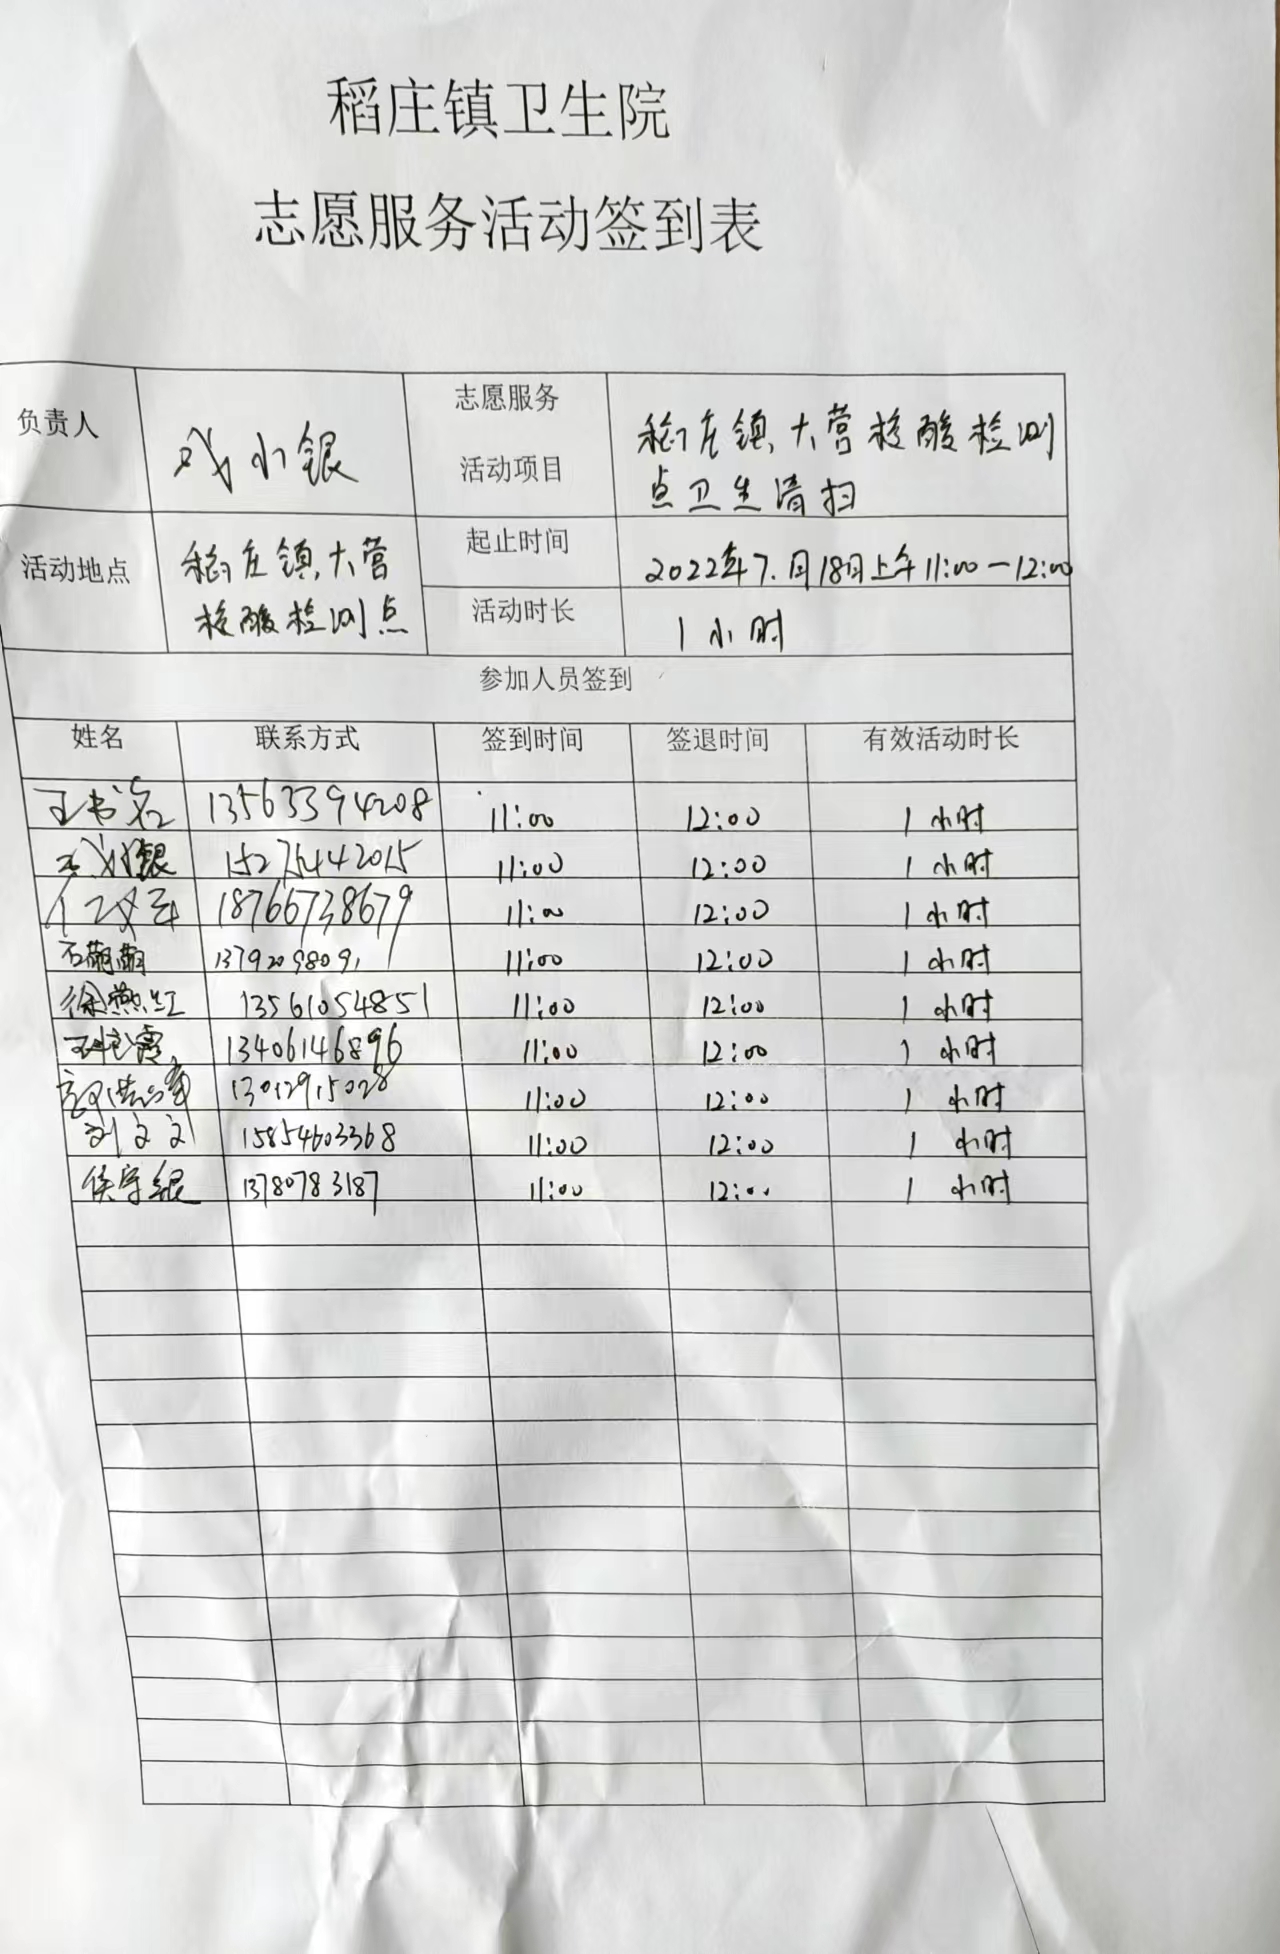 稻庄镇卫生院
志愿服务活动签到表
负责人 戏小银 志愿服务活动项目 稻庄镇大营核酸检测
点卫生清扫
活动地点 稻庄镇大营
核酸检测点
起止时间 2022年7.月18日上午11:00—12:00
活动时长 1小时
参加人员签到
姓名 联系方式 签到时间 签退时间 有效活动时长
13563394208 11:00 12:00 1小时
11:00 12:00 1小时
18766738679 11:00 12:00 1小时
石萌萌 11:00 12:00 1小时
徐燕红 13561054851 11:00 12:00 1小时
13406146896 11:00 12:00 1小时
13012915028 11:00 12:00 1小时
刘文文 15854603368 11:00 12:00 1小时
13780783187 11:00 12:00 1小时